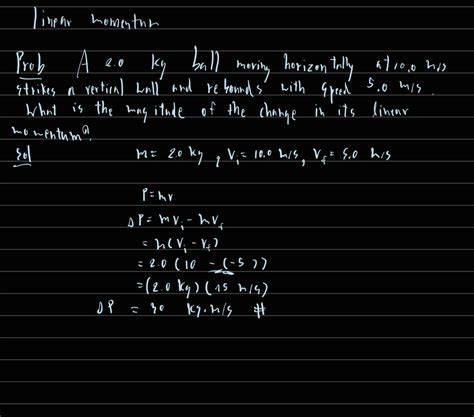 Linear momentum
Prob A 2.0 kg ball moving horizontally at 10.0 m/s
strikes a vertical wall and rebounds with speed 5.0 m/s.
What is the magnitude of the change in its linear
momentum?
Sol m = 2.0 kg, Vi = 10.0 m/s, Vf = 5.0 m/s
P = mv
ΔP = mVi - mVf
= m(Vi - Vf)
= 2.0 (10 - (-5))
= (2.0 kg) (15 m/s)
ΔP = 30 kg.m/s #